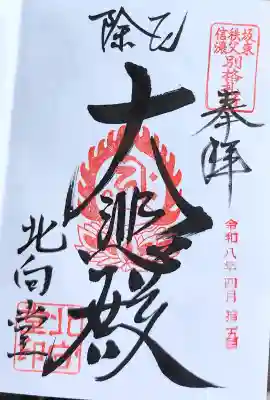 坂東
秩父
信濃
別格札
奉拝
令和八年四月拾五日
厄除
大悲殿
北向堂
北向
堂印